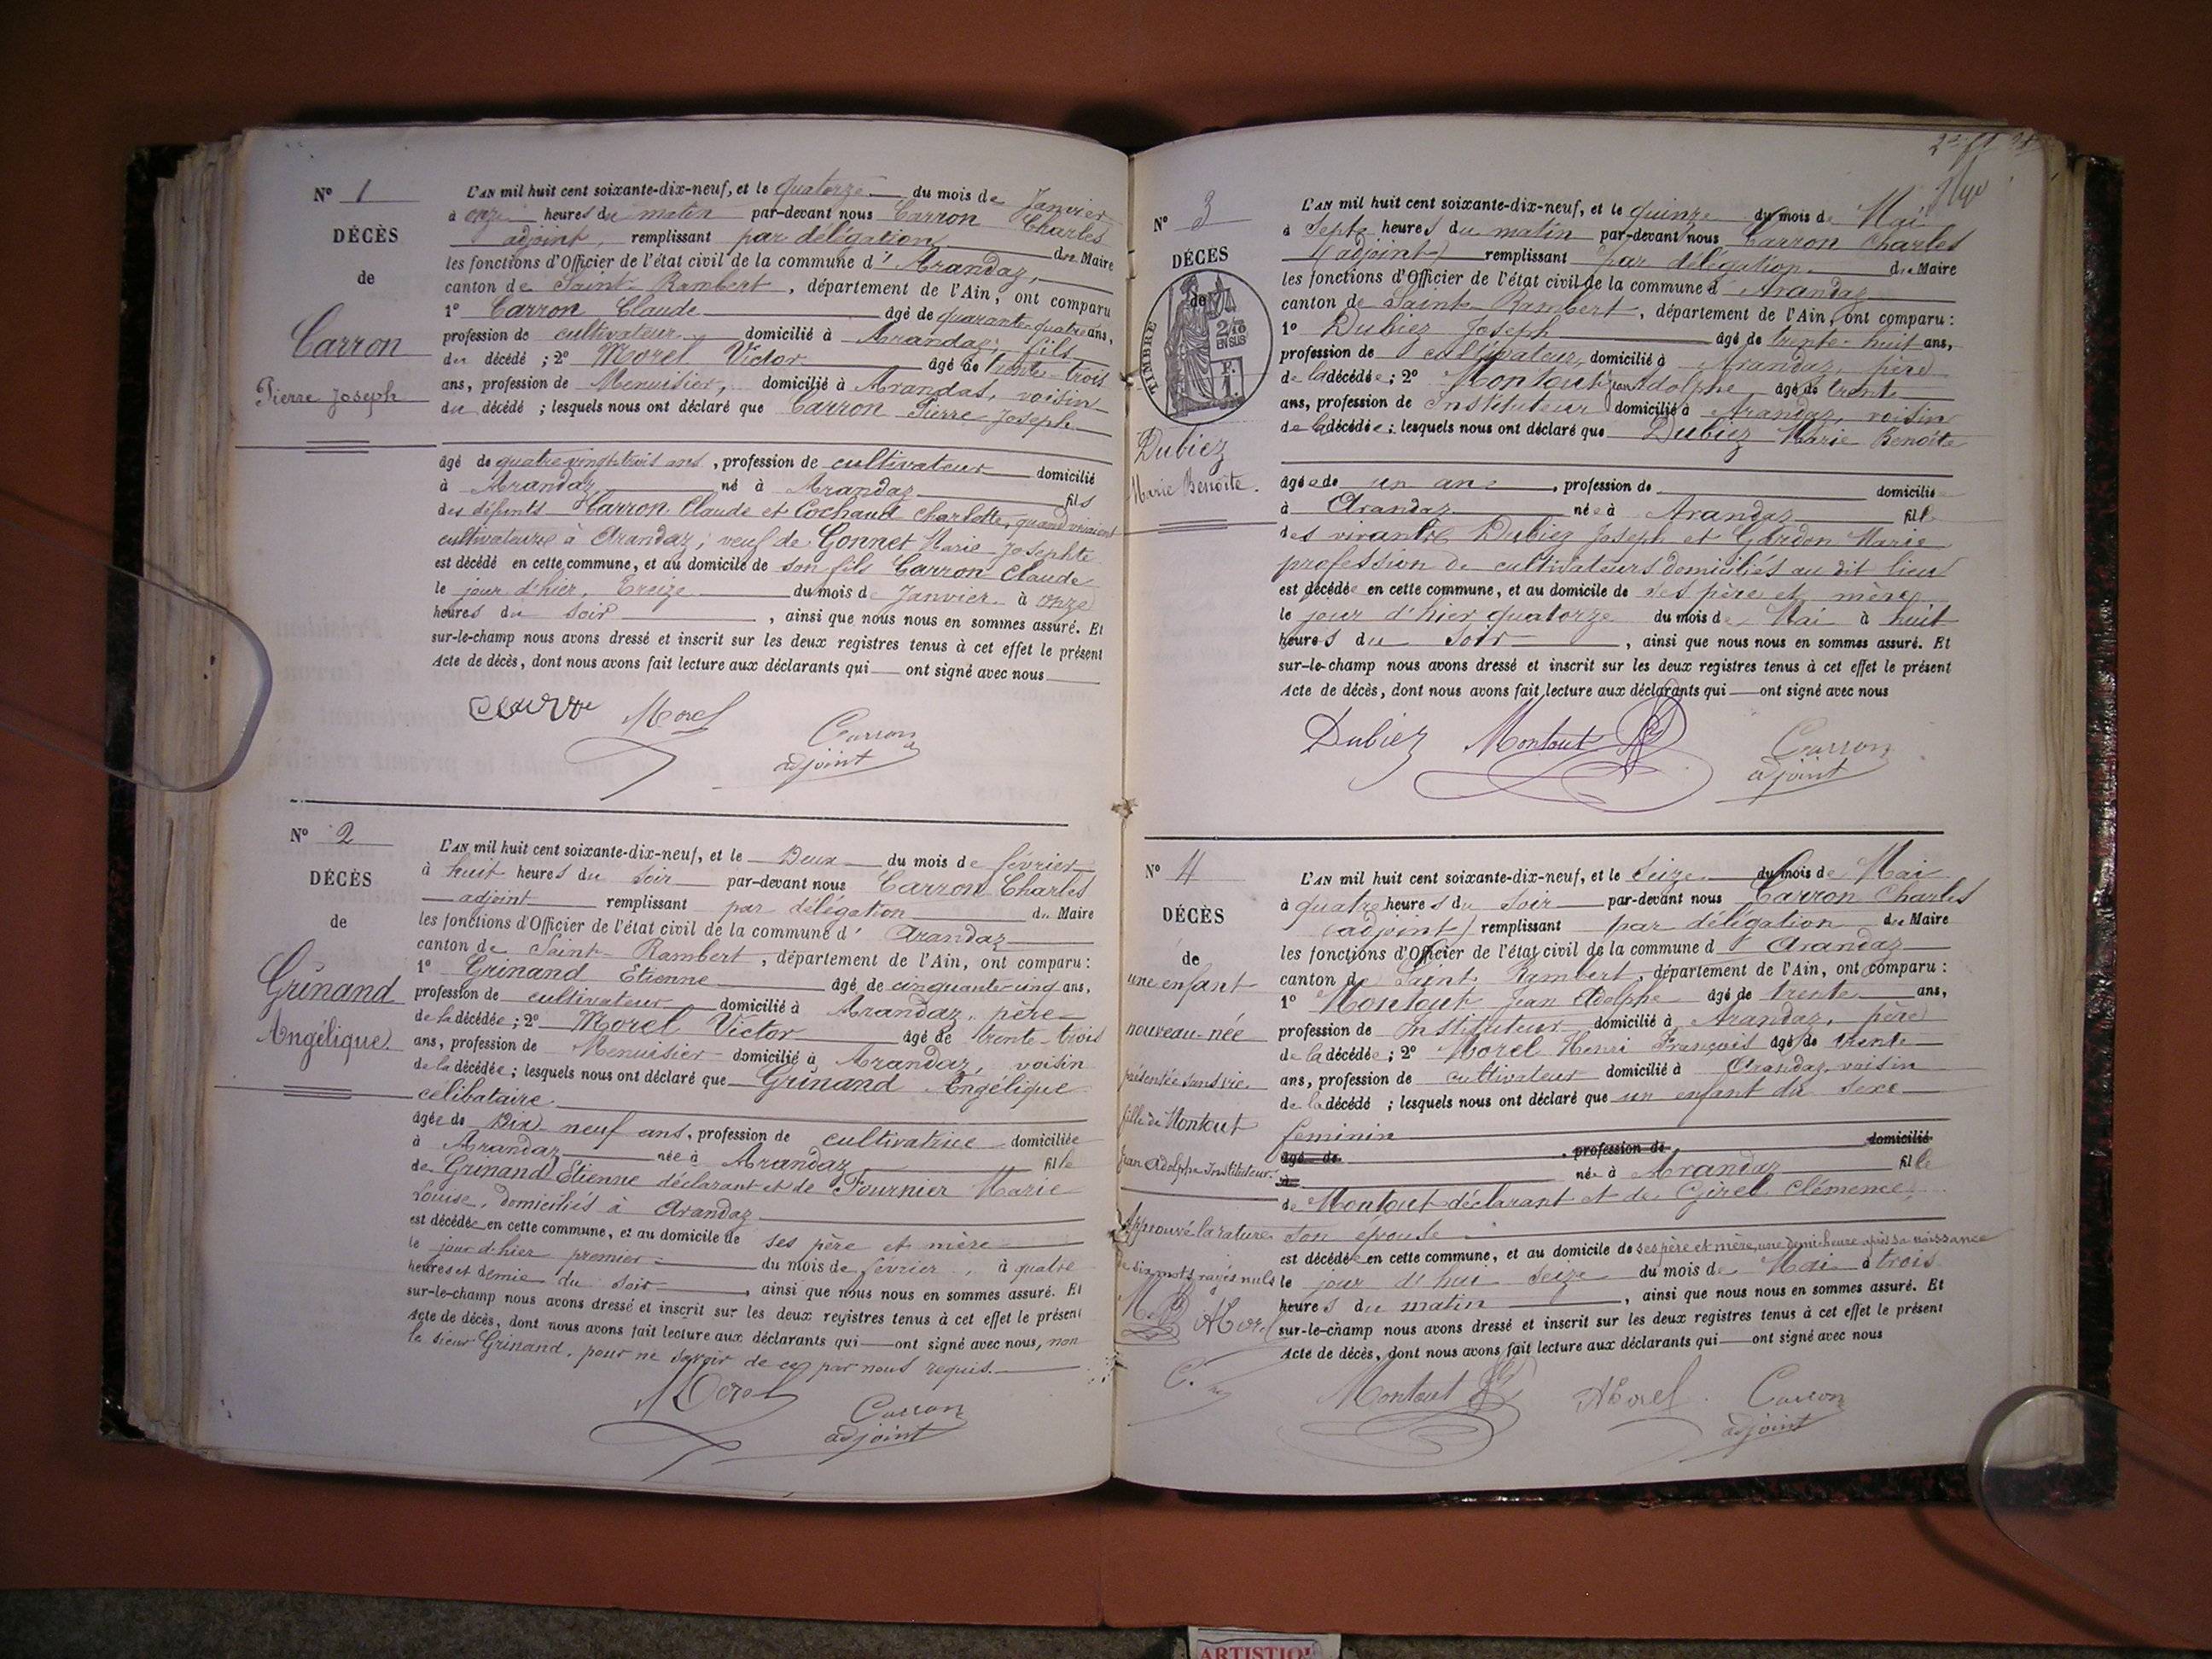 N° 1
DÉCÈS
de
Carron
Pierre Joseph
L'AN mil huit cent soixante-dix-neuf, et le quatorze du mois de Janvier
à onze heures du matin par-devant nous Carron Charles
adjoint, remplissant par délégation du Maire
les fonctions d'Officier de l'état civil de la commune d' Arandaz,
canton de Saint-Rambert, département de l'Ain, ont comparu
1° Carron Claude âgé de quarante-quatre ans,
profession de cultivateur domicilié à Arandaz, fils
du décédé ; 2° Morel Victor âgé de trente-trois
ans, profession de Menuisier, domicilié à Arandas, voisin
du décédé ; lesquels nous ont déclaré que Carron Pierre Joseph
âgé de quatre vingt trois ans, profession de cultivateur domicilié
à Arandaz né à Arandaz fils
des défunts Carron Claude et Cochaud Charlotte, quand vivaient
cultivateurs à Arandaz ; veuf de Gonnet Marie Josephte
est décédé en cette commune, et au domicile de son fils Carron Claude
le jour d'hier, treize du mois de Janvier à onze
heures du soir, ainsi que nous nous en sommes assuré. Et
sur-le-champ nous avons dressé et inscrit sur les deux registres tenus à cet effet le présent
Acte de décès, dont nous avons fait lecture aux déclarants qui ont signé avec nous
Morel Carron
adjoint
N° 2
DÉCÈS
de
Grinand
Angélique
L'AN mil huit cent soixante-dix-neuf, et le Deux du mois de février
à huit heures du soir par-devant nous Carron Charles
adjoint remplissant par délégation du Maire
les fonctions d'Officier de l'état civil de la commune d' Arandaz
canton de Saint-Rambert, département de l'Ain, ont comparu :
1° Grinand Etienne âgé de cinquante cinq ans,
profession de cultivateur domicilié à Arandaz, père
de la décédée ; 2° Morel Victor âgé de trente-trois
ans, profession de Menuisier domicilié à Arandaz, voisin
de la décédée ; lesquels nous ont déclaré que Grinand Angélique
célibataire
âgée de Dix-neuf ans, profession de cultivatrice domiciliée
à Arandaz née à Arandaz fille
de Grinand Etienne déclarant et de Fournier Marie
Louise, domiciliés à Arandaz
est décédée en cette commune, et au domicile de ses père et mère
le jour d'hier premier du mois de février, à quatre
heures et demie du soir, ainsi que nous nous en sommes assuré. Et
sur-le-champ nous avons dressé et inscrit sur les deux registres tenus à cet effet le présent
Acte de décès, dont nous avons fait lecture aux déclarants qui ont signé avec nous, non
le sieur Grinand, pour ne savoir de ce par nous requis.
Morel Carron
adjoint
N° 3
DÉCÈS
de
TIMBRE
2/10
EN SUS
F.
1.
Dubiez
Marie Benoîte.
L'AN mil huit cent soixante-dix-neuf, et le quinze du mois de Mai
à Sept heures du matin par-devant nous Carron Charles
(adjoint) remplissant par délégation du Maire
les fonctions d'Officier de l'état civil de la commune d' Arandaz
canton de Saint-Rambert, département de l'Ain, ont comparu :
1° Dubiez Joseph âgé de trente-huit ans,
profession de cultivateur, domicilié à Arandaz, père
de la décédée ; 2° Montout Jean Adolphe âgé de trente
ans, profession de Instituteur domicilié à Arandaz, voisin
de la décédée ; lesquels nous ont déclaré que Dubiez Marie Benoîte
âgée de un an, profession de domicilié
à Arandaz née à Arandaz fille
des vivants Dubiez Joseph et Gardon Marie
profession de cultivateurs domiciliés au dit lieu
est décédée en cette commune, et au domicile de ses père et mère
le jour d'hier quatorze du mois de Mai à huit
heures du soir, ainsi que nous nous en sommes assuré. Et
sur-le-champ nous avons dressé et inscrit sur les deux registres tenus à cet effet le présent
Acte de décès, dont nous avons fait lecture aux déclarants qui ont signé avec nous
Dubiez Montout Carron
adjoint
N° 4
DÉCÈS
de
une enfant
nouveau-née
présentée sans vie
fille de Montout
Jean Adolphe Instituteur.
Approuvé la rature
de six mots rayés nuls
Morel
C.
L'AN mil huit cent soixante-dix-neuf, et le Seize du mois de Mai
à quatre heures du soir par-devant nous Carron Charles
(adjoint) remplissant par délégation du Maire
les fonctions d'Officier de l'état civil de la commune d' Arandaz
canton de Saint Rambert, département de l'Ain, ont comparu :
1° Montout Jean Adolphe âgé de trente ans,
profession de Instituteur domicilié à Arandaz, père
de la décédée ; 2° Morel Henri François âgé de trente
ans, profession de cultivateur domicilié à Arandaz, voisin
de la décédé ; lesquels nous ont déclaré que un enfant du sexe
féminin
âgé de , profession de domicilié
à née à Arandaz fille
de Montout déclarant et de Girel Clémence,
son épouse
est décédée en cette commune, et au domicile de ses père et mère, une demi-heure après sa naissance
le jour d'hui seize du mois de Mai à trois
heures du matin, ainsi que nous nous en sommes assuré. Et
sur-le-champ nous avons dressé et inscrit sur les deux registres tenus à cet effet le présent
Acte de décès, dont nous avons fait lecture aux déclarants qui ont signé avec nous
Montout Morel Carron
adjoint